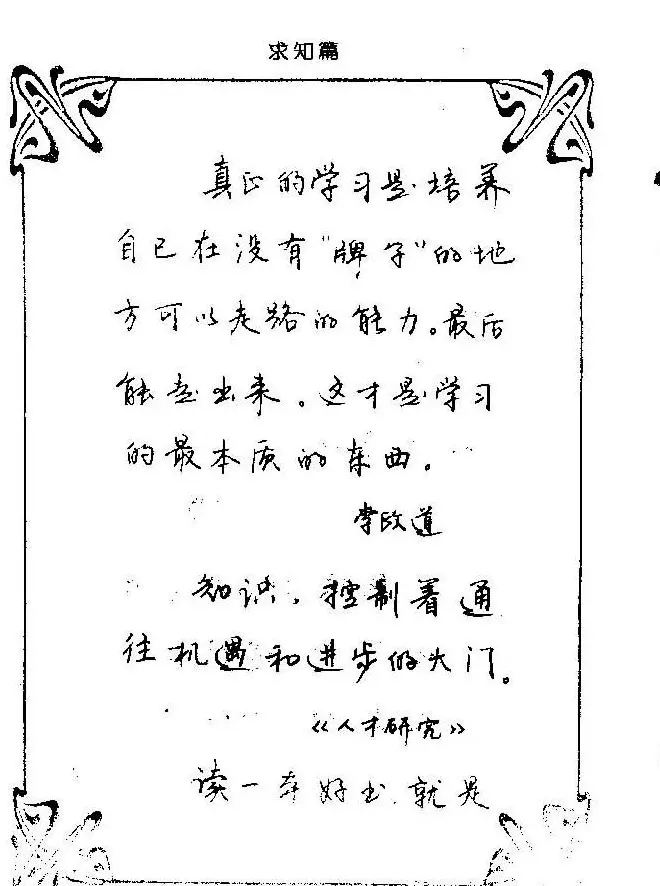 求知篇
真正的学习是培养
自己在没有“牌子”的地
方可以走路的能力。最后
能走出来。这才是学习
的最本质的东西。
李政道
知识，控制着通
往机遇和进步的大门。
《人才研究》
读一本好书，就是